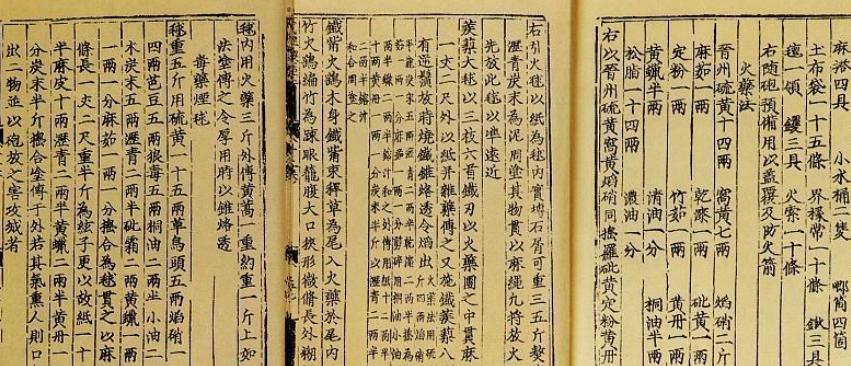 麻搭四具　小水桶二隻　唧筒四箇
土布袋一十五條　界椽常一十條　鍬三具
氊一領　钁三具　火索一十條
右隨砲預備用以蓋覆及防火箭
火藥法
晉州硫黃十四兩　窩黃七兩　焰硝二斤
麻茹一兩　乾漆一兩　砒黃一兩
定粉一兩　竹茹一兩　黃丹一兩
黃蠟半兩　清油一分　桐油半兩
松脂一十四兩　濃油一分
右以晉州硫黃窩黃焰硝同擣羅砒黃定粉黃丹
右引火毬以紙為毬內實塼石屑可重三五斤熬
瀝青炭末為泥周塗其物貫以麻繩凡將放火
先放此毬以準遠近
蒺藜火毬以三枝六首鐵刃以火藥團之中貫麻
一丈二尺外以紙并雜藥傅之又施鐵蒺藜八
有逆鬚放時燒鐵錐烙透令焰出
火藥法用硫
斤四兩焰硝
半麤炭末五兩瀝青二兩半乾漆二兩半搗為
茹一兩一分麻茹一兩一分剪碎用桐油小油
兩半蠟二兩半鎔汁和之外傅用紙十二兩半
十兩黃丹一兩一分炭末半斤以瀝青二兩半
二兩半鎔汁
和合周塗之
鐵嘴火鷂木身鐵嘴束稈草為尾入火藥於尾內
竹火鷂編竹為疎眼籠腹大口狹形微脩長外糊
毬內用火藥三斤外傅黃蒿一重約重一斤上如
法塗傅之令厚用時以錐烙透
毒藥煙毬
毬重五斤用硫黃一十五兩草烏頭五兩焰硝一
四兩芭豆五兩狼毒五兩桐油二兩半小油二
木炭末五兩瀝青二兩半砒霜二兩黃蠟一兩
一兩一分麻茹一兩一分擣合為毬貫之以麻
條長一丈二尺重半斤為絃子更以故紙一十
半麻皮十兩瀝青二兩半黃蠟二兩半黃丹一
分炭末半斤擣合塗傅于外若其氣熏人則口
出二物並以砲放之害攻城者